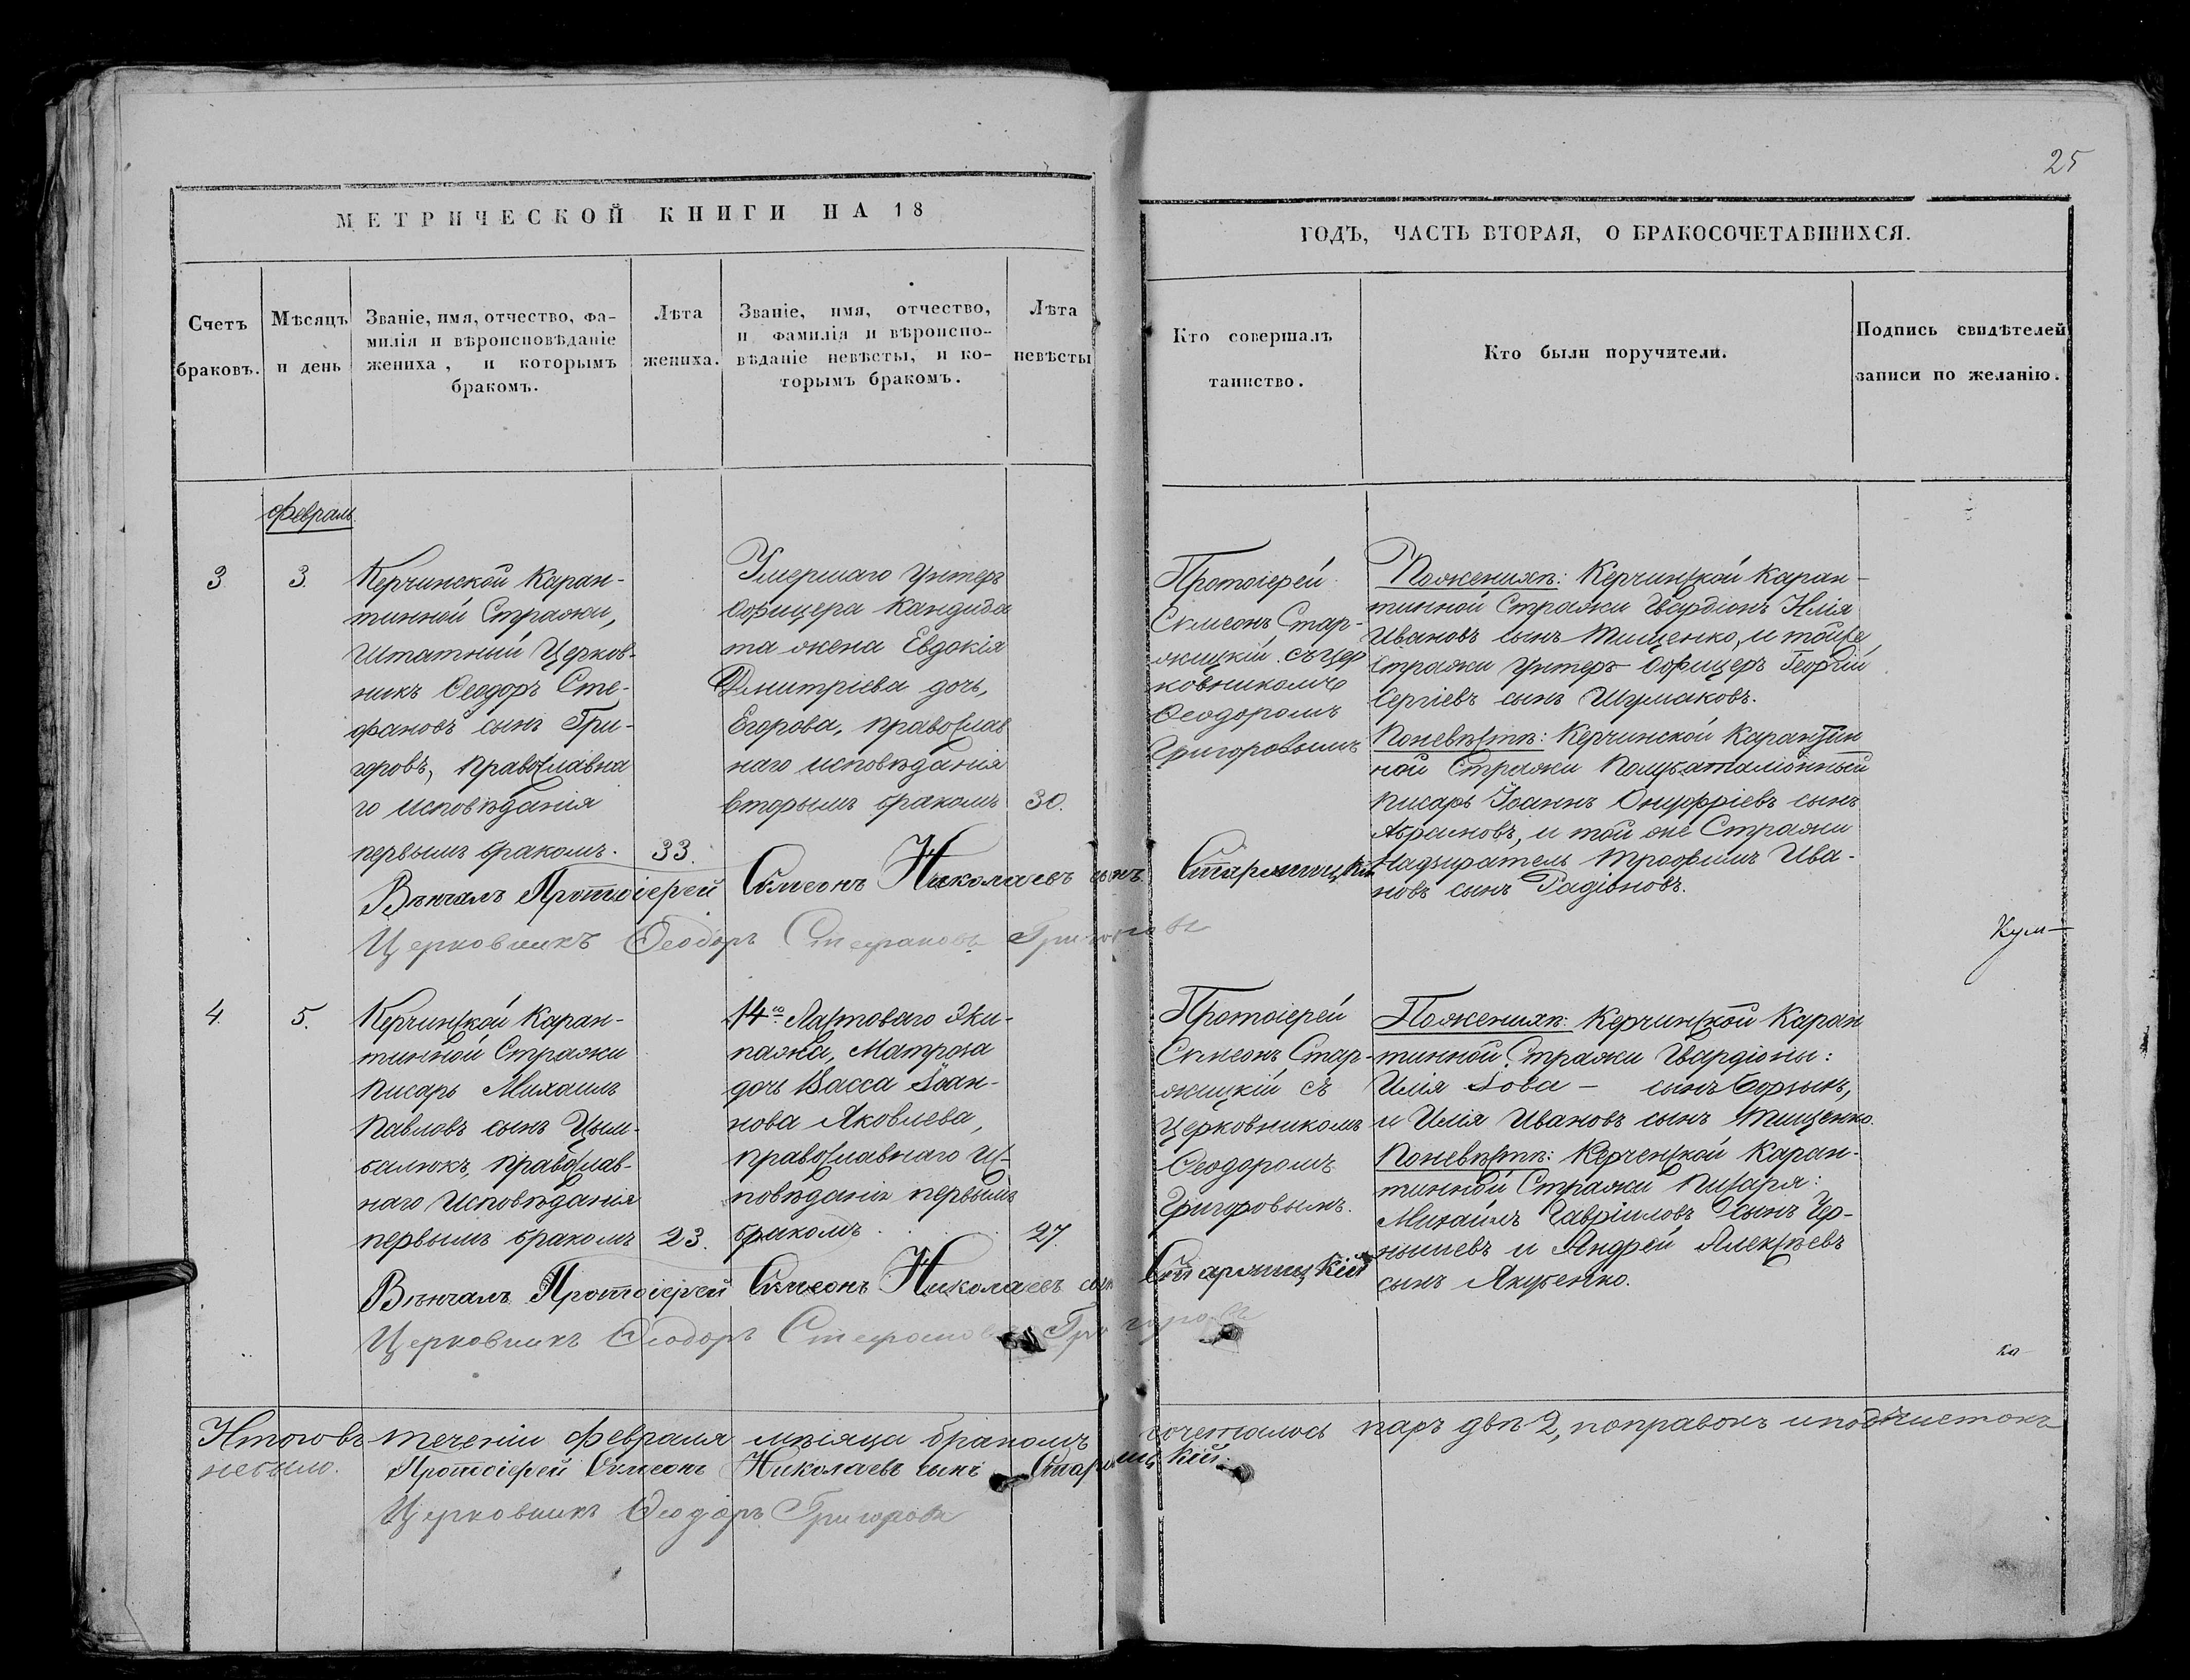 25
МЕТРИЧЕСКОЙ КНИГИ НА 18
ГОДЪ, ЧАСТЬ ВТОРАЯ, О БРАКОСОЧЕТАВШИХСЯ.
Счетъ
браковъ.
Мѣсяцъ
и день
Званіе, имя, отчество, фа-
милія и вѣроисповѣданіе
жениха, и которымъ
бракомъ.
Лѣта
жениха.
Званіе, имя, отчество,
и фамилія и вѣроиспо-
вѣданіе невѣсты, и ко-
торымъ бракомъ.
Лѣта
невѣсты
Кто совершалъ
таинство.
Кто были поручители.
Подпись свидѣтелей
записи по желанію.
Февраль
3.
3.
Керчинской Каран-
тинной Стражи,
Штатный Церков-
никъ Ѳеодоръ Сте-
фановъ сынъ Гри-
горовъ, православна
го исповѣданія
первымъ бракомъ.
33.
Умершаго Унтеръ
Офицера Кандида
та жена Евдокія
Димитріева дочь,
Егорова, православ
наго исповѣданія
вторымъ бракомъ
30.
Протоіерей
Сѵмеонъ Стар-
жицкій. съ цер
ковникомъ
Ѳеодоромъ
Григоровымъ
Поженихѣ: Керчинской Каран-
тинной Стражи Гвардіонъ Илія
Ивановъ сынъ Тищенко, и тойже
Стражи Унтеръ Офицеръ Георгій
Сергіевъ сынъ Шумаковъ.
Поневѣстѣ: Керчинской Карантин
ной Стражи Полубаталіонный
писарь Іоаннъ Онуфріевъ сынъ
и той же Стражи
Надзиратель Трофимъ Ива-
новъ сынъ Радіоновъ.
Вѣнчалъ Протоіерей Сѵмеонъ Николаевъ сынъ Старжицкій
Церковникъ Ѳеодоръ Стефановъ Григоровъ
Кум-
4.
5.
Керчинской Каран-
тинной Стражи
писарь Михаилъ
Павловъ сынъ Цым-
балюкъ, православ-
наго исповѣданія
первымъ бракомъ
23.
14го Ластоваго Эки-
пажа, Матроза
дочь Васса Іоан-
нова Яковлева,
православнаго ис-
повѣданія первымъ
бракомъ
27.
Протоіерей
Сѵмеонъ Стар-
жицкій съ
Церковникомъ
Ѳеодоромъ
Григоровымъ.
Поженихѣ: Керчинской Каран
тинной Стражи Гвардіоны:
Илія Іова - сынъ
и Илія Ивановъ сынъ Тищенко.
Поневѣстѣ: Керченской Каран-
тинной Стражи Писаря:
Михаилъ Гавріиловъ сынъ Чер-
нышевъ и Андрей Алексѣевъ
сынъ Якубенко.
Вѣнчалъ Протоіерей Сѵмеонъ Николаевъ сынъ Старжицкій
Церковникъ Ѳеодоръ Стефановъ Григоровъ
Итоговъ теченіи февраля мѣсяца бракомъ сочеталось паръ двѣ 2, поправокъ и подчистокъ
небыло. Протоіерей Сѵмеонъ Николаевъ сынъ Старжицкій.
Церковникъ Ѳеодоръ Григоровъ